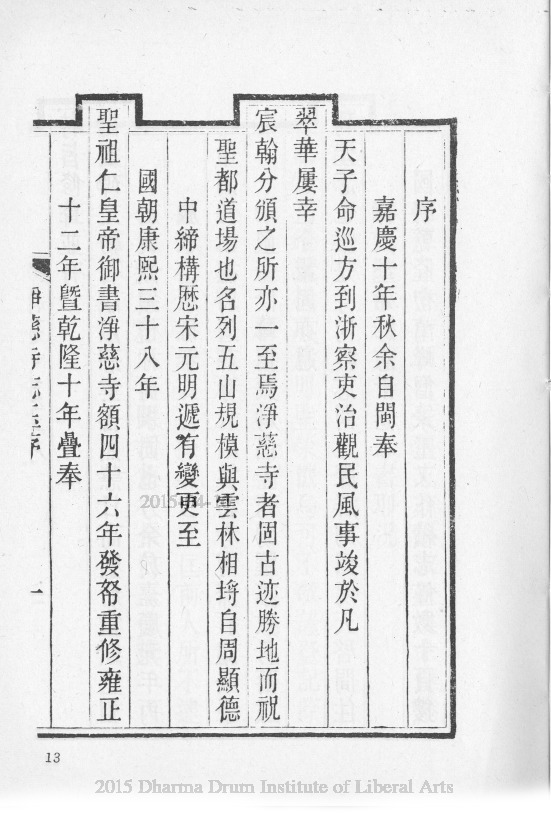 序
嘉慶十年秋余自閩奉
天子命巡方到浙察吏治觀民風事竣於凡
翠華屢幸
宸翰分頒之所亦一至焉淨慈寺者固古迹勝地而祝
聖都道場也名列五山規模與雲林相埒自周顯德
中締構歷宋元明遞有變更至
國朝康熙三十八年
聖祖仁皇帝御書淨慈寺額四十六年發帑重修雍正
十二年暨乾隆十年疊奉
13
2015 Dharma Drum Institute of Liberal Arts